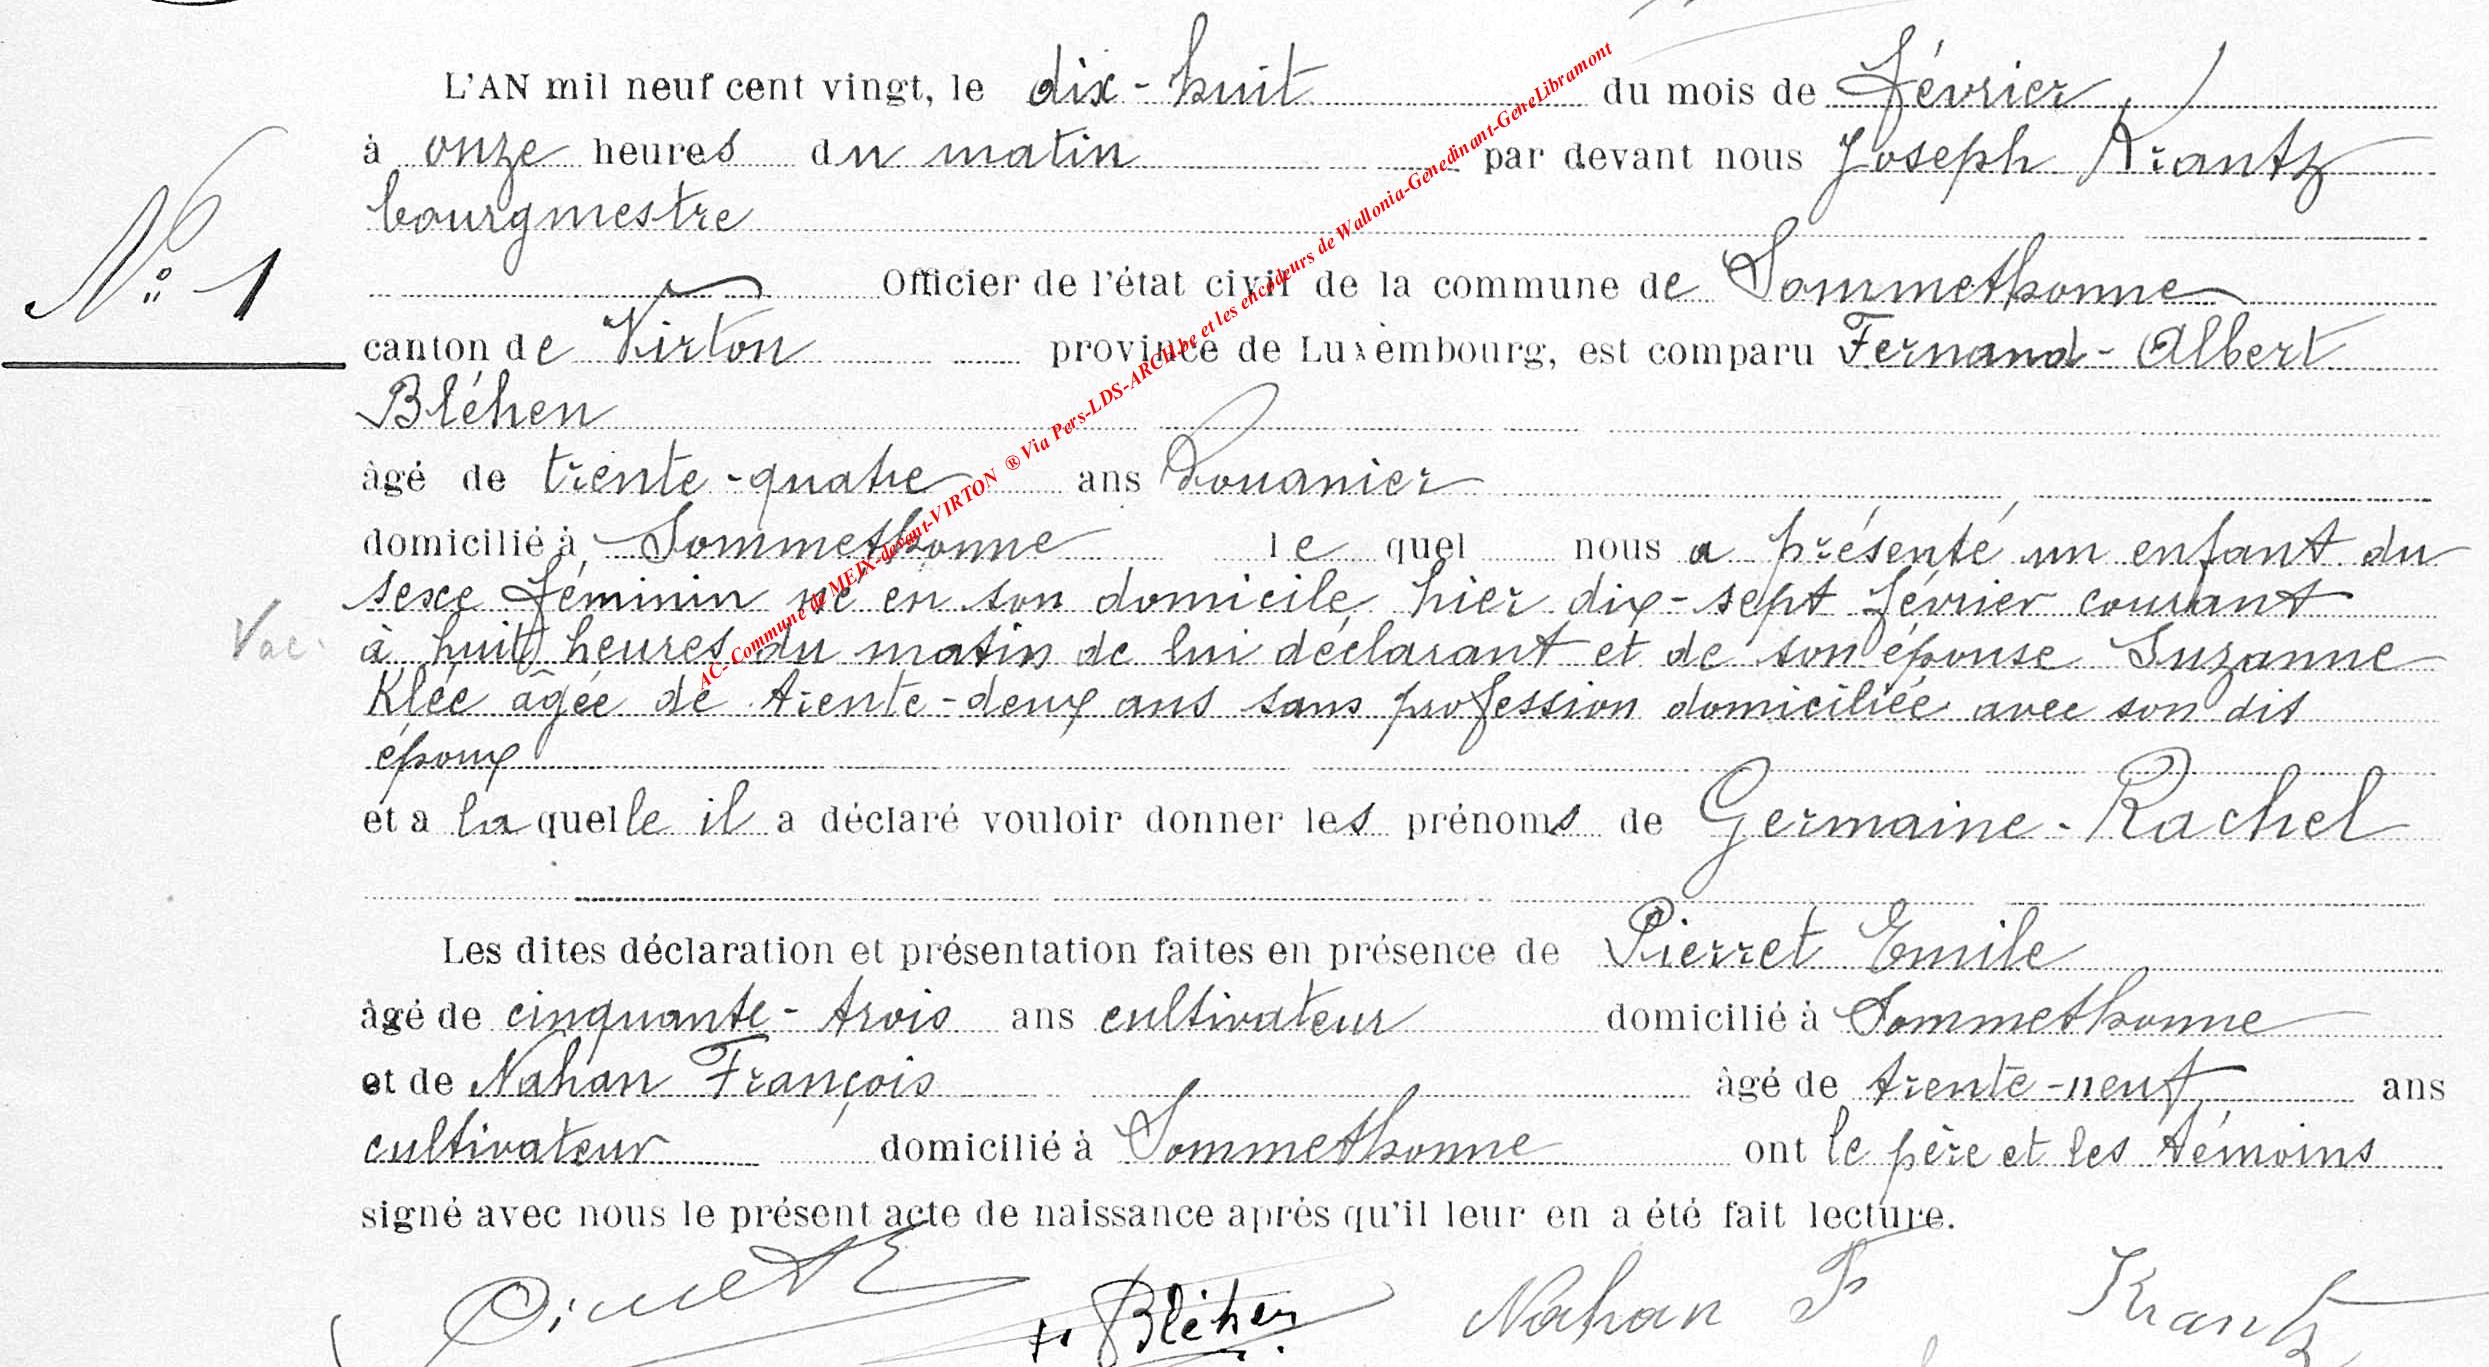 L'AN mil neuf cent vingt, le dix-huit du mois de Février
à onze heures du matin par devant nous Joseph Krantz
bourgmestre
N° 1
Officier de l'état civil de la commune de Sommethonne
canton de Virton province de Luxembourg, est comparu Fernand-Albert
Bléhen
âgé de trente-quatre ans Douanier
domicilié à Sommethonne le quel nous a présenté un enfant du
sexe féminin né en son domicile hier dix-sept février courant
Vac.
à huit heures du matin de lui déclarant et de son épouse Suzanne
Klée âgée de trente-deux ans sans profession domiciliée avec son dit
époux
et a la quelle il a déclaré vouloir donner les prénoms de Germaine-Rachel
Les dites déclaration et présentation faites en présence de Pierret Emile
âgé de cinquante-trois ans cultivateur domicilié à Sommethonne
et de Nahan François âgé de trente-neuf ans
cultivateur domicilié à Sommethonne ont le père et les témoins
signé avec nous le présent acte de naissance après qu'il leur en a été fait lecture.
Pierret E Bléhen Nahan F Krantz
AC- Commune de MEIX-devant-VIRTON ® Via Pers-LDS-ARCH.be et les encodeurs de Wallonia-Genedinant-GeneLibramont